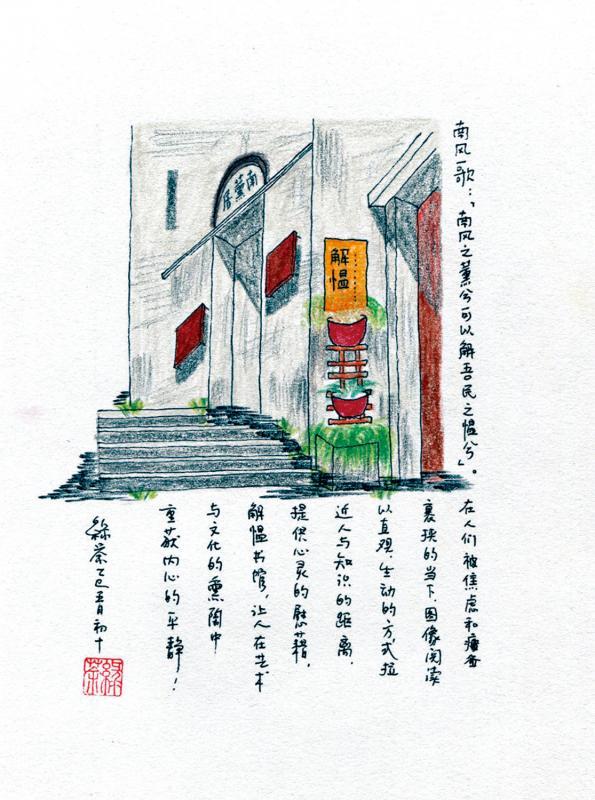 南风歌：“南风之薰兮可以解吾民之愠兮”。
南薰居
解愠
在人们被焦虑和疲惫
裹挟的当下，图像阅读
以直观、生动的方式拉
近人与知识的距离，
提供心灵的慰藉，
解愠书馆，让人在艺术
与文化的熏陶中
重获内心的平静！
乙巳五月初十